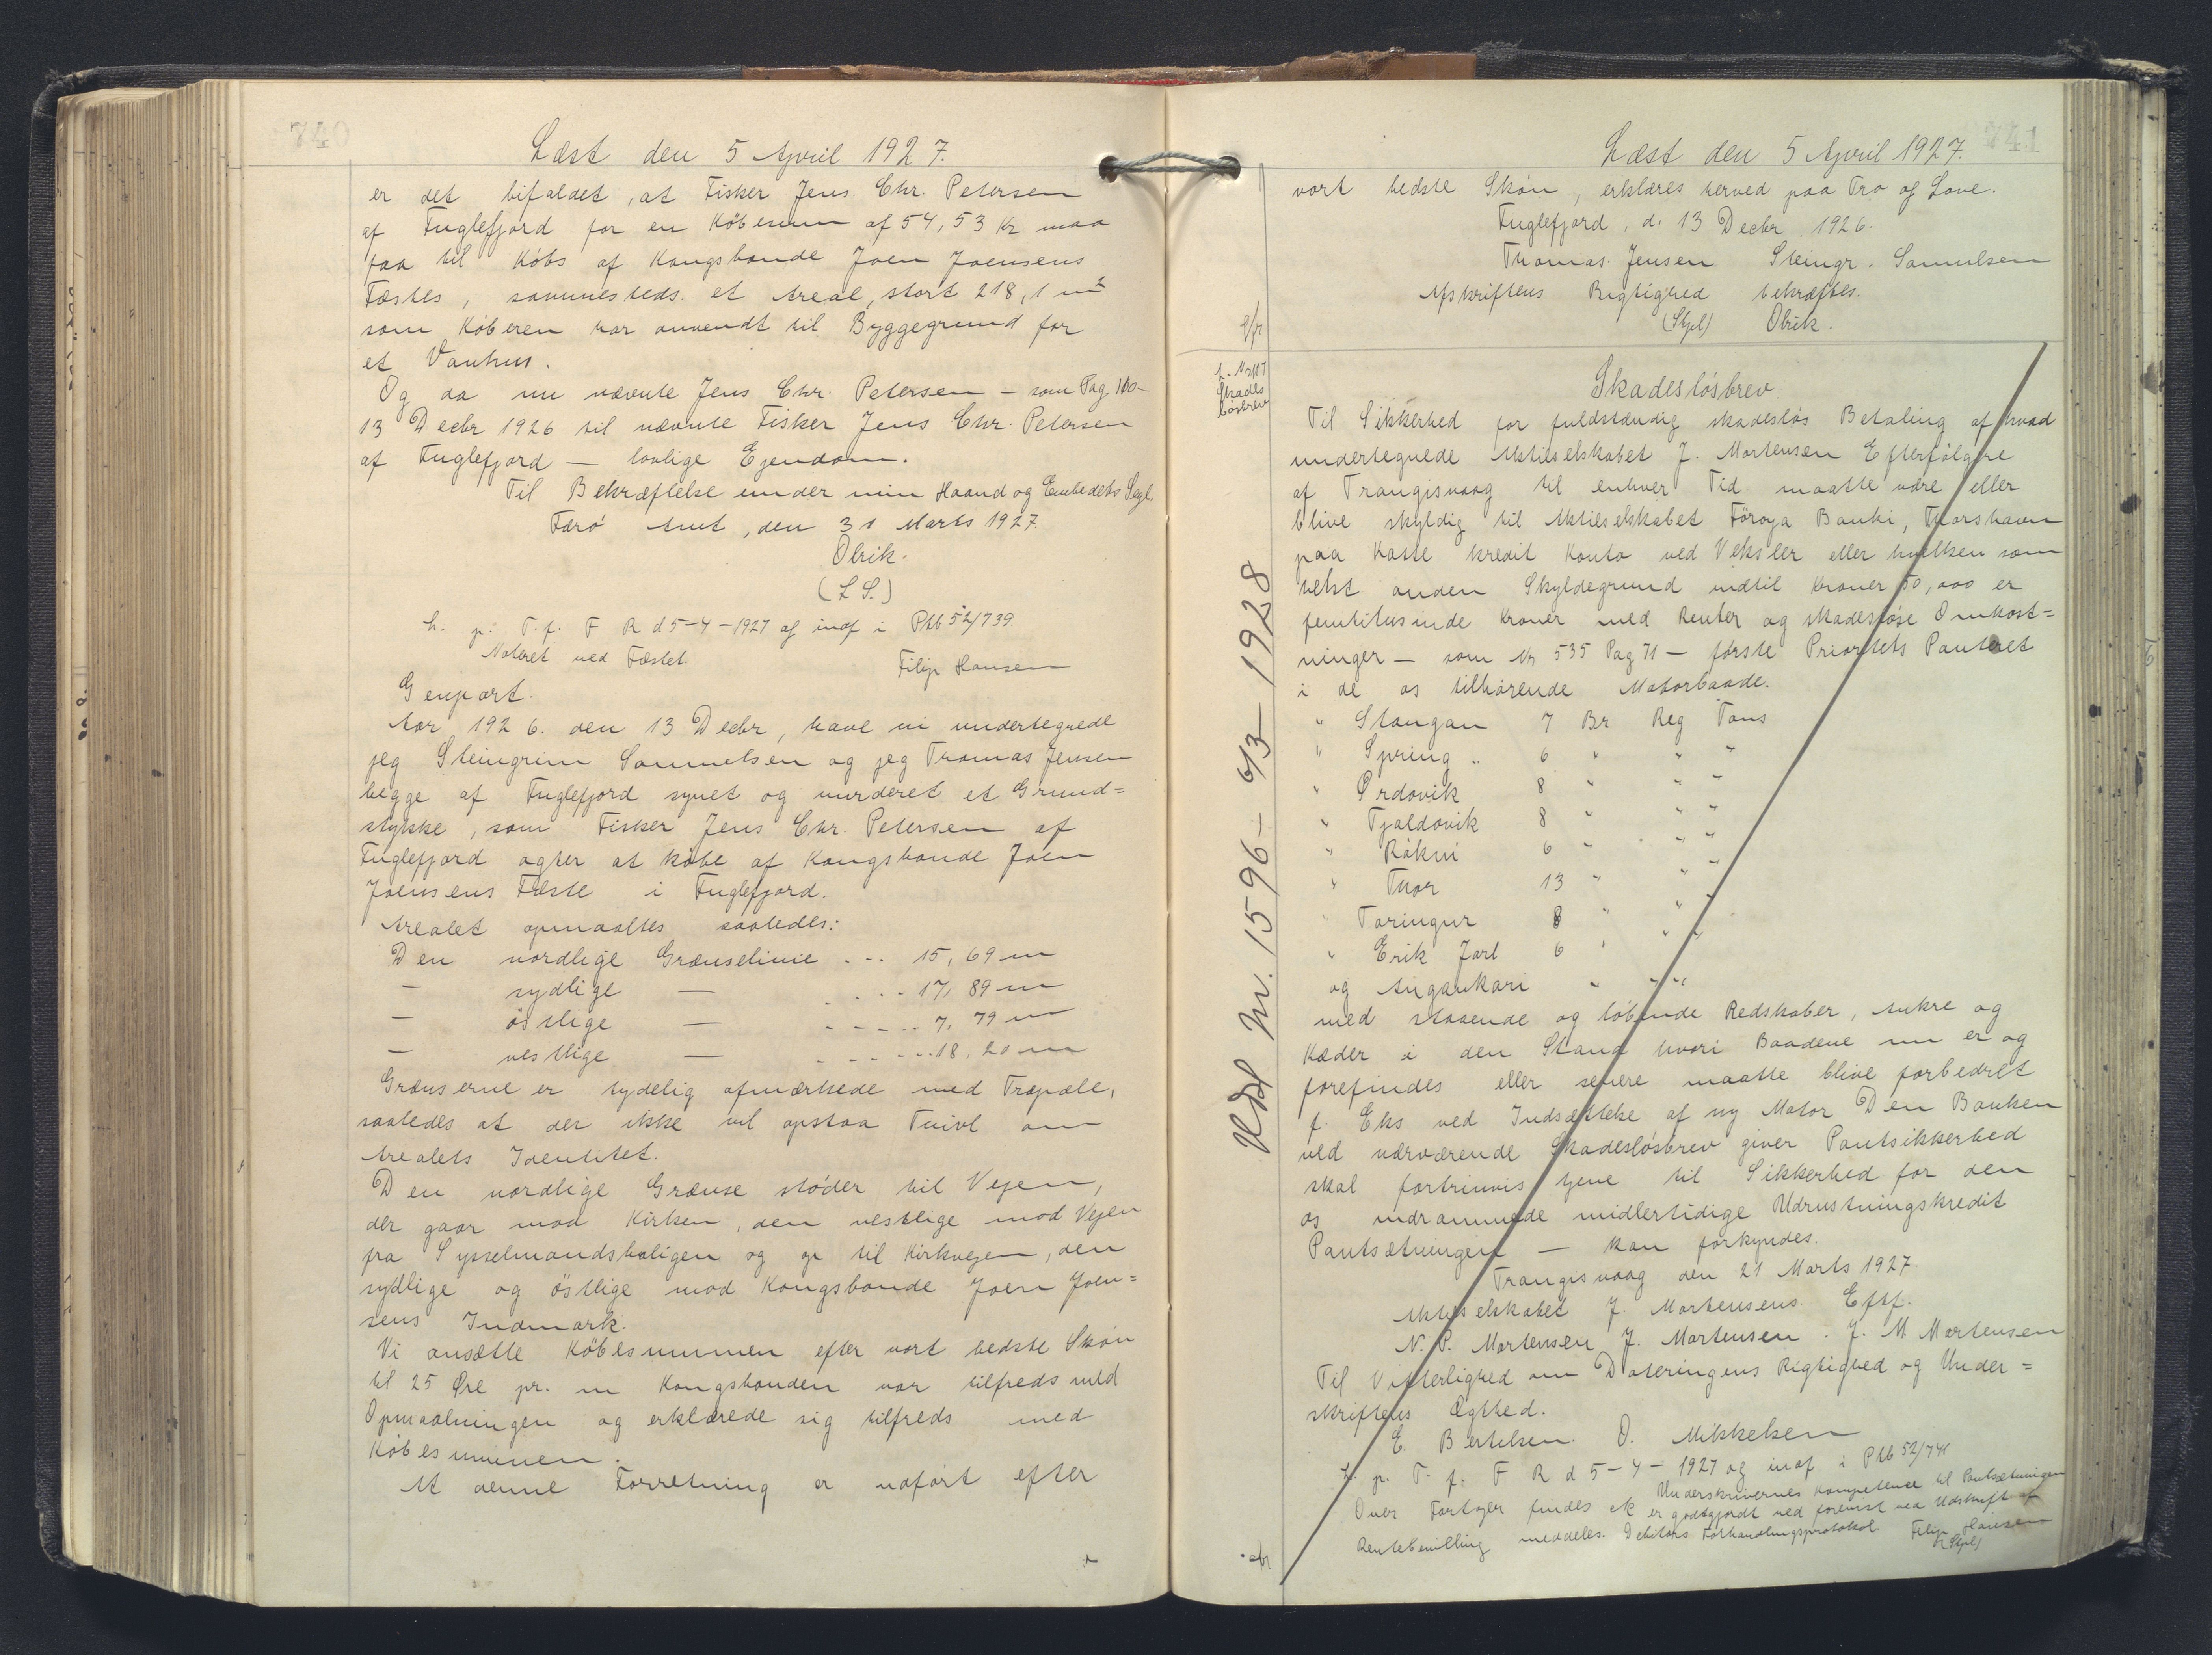 740
Læst den 5 April 1927.
er det bifaldet, at Fisker Jens Chr. Petersen
af Fuglefjord for en Købesum af 54,53 Kr maa
faa til Købs af Kongsbonde Joen Joensens
Fæstes, sammesteds et Areal, stort 218,1 m²
som Køberen har anvendt til Byggegrund for
et Vaahus.
Og da nu nævnte Jens Chr. Petersen — som Pag. 100 —
13 Decbr 1926 til nævnte Fisker Jens Chr. Petersen
af Fuglefjord — lovlige Ejendom.
Til Bekræftelse under min Haand og Embedets Segl.
Færø Amt, den 31 Marts 1927.
Olrik.
(L S.)
L. p. T. f. F R d 5-4-1927 og indf i Ptb 52/739
Noteret ved Fæstet.
Filip Hansen
Genpart.
Aar 1926. den 13 Decbr, have vi undertegnede
jeg Steingrim Samuelsen og jeg Thomas Jensen
begge af Fuglefjord synet og vurderet et Grund=
stykke, som Fisker Jens Chr. Petersen af
Fuglefjord agter at købe af Kongsbonde Joen
Joensens Fæste i Fuglefjord.
Arealet opmaaltes saaledes:
Den nordlige Grænselinie ... 15,69 m
— sydlige — .... 17,89 m
— östlige — ..... 7,79 m
— vestlige — ..... 18,20 m
Grænserne er tydelig afmærkede med Træpæle,
saaledes at der ikke vil opstaa Tvivl om
Arealets Identitet.
Den nordlige Grænse støder til Vejen,
der gaar mod Kirken, den vestlige mod Vejen
fra Sysselmandsboligen og op til Kirkvejen, den
sydlige og östlige mod Kongsbonde Joen Joen=
sens Indmark.
Vi ansætte Købesummen efter vort bedste Skøn
til 25 Øre pr. m Kongsbonden var tilfreds med
Opmaalningen og erklærede sig tilfreds med
Købesummen.
At denne Forretning er udført efter
741
Læst den 5 April 1927.
vort bedste Skøn, erklæres herved paa Tro og Love.
Fuglefjord, d. 13 Decbr. 1926.
Thomas Jensen Steingr. Samuelsen
Afskriftens Rigtighed bekræftes.
(Stpl) Olrik.
Skades
løsbrev
Skadesløsbrev.
Til Sikkerhed for fuldstændig skadesløs Betaling af hvad
undertegnede Aktieselskabet J. Mortensen Efterfølgere
af Trangisvaag til enhver Tid maatte være eller
blive skyldig til Aktieselskabet Föroya Banki, Thorshavn
paa Kasse kredit Konto ved Veksler eller hvilken som
helst anden Skyldegrund indtil Kroner 50,000 er
femtitusinde Kroner med Renter og skadesløse Omkost=
ninger — som Nr 535 Pag 71 — første Prioritets Panteret
i de os tilhørende Motorbaade.
" Stangan 7 Br Reg Tons
" Spring " 6 " " "
" Ördovik 8 " " "
" Tjaldovik 8 " " "
" Røkni 6 " " "
" Thor 13 " " "
" Toringur 8 " " "
" Erik Jarl 6 " " "
og Angankari " " "
med staaende og løbende Redskaber, Ankre og
Kæder i den Stand hvori Baadene nu er og
forefindes eller senere maatte blive forbedret
f. Eks ved Indsættelse af ny Motor Den Banken
ved nærværende Skadesløsbrev giver Pantsikkerhed
skal fortrinvis tjene til Sikkerhed for den
os indrømmede midlertidige Udrustningskredit
Pantsætningen — kan forkyndes.
Trangisvaag den 21 Marts 1927
Aktieselskabet J. Mortensens Eftf.
N. P. Mortensen J. Mortensen. J. M Mortensen
Til Vitterlighed om Dateringens Rigtighed og Under=
skriftens Ægthed.
E. Bertelsen. O. Mikkelsen
L. p. T. f. F R d 5-4-1927 og indf i Ptb 52/741
Underskrivernes Kompetence til Pantsætningen
Over Fartøjer findes ek er godtgjordt ved forevist ved Udskrift af
Rentebevilling meddeles. Debitors Forhandlingsprotokol. Filip Hansen
(Stpl)
Udsl Nr. 1596 – 6/3 – 1928